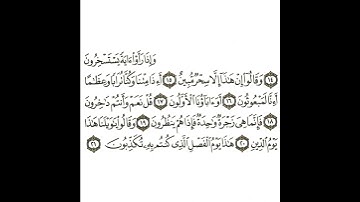 وَإِذَا رَأَوْا۟ ءَايَةً يَسْتَسْخِرُونَ
﴿١٤﴾ وَقَالُوٓا۟ إِنْ هَٰذَآ إِلَّا سِحْرٌ مُّبِينٌ ﴿١٥﴾ أَءِذَا مِتْنَا وَكُنَّا تُرَابًا وَعِظَٰمًا
أَءِنَّا لَمَبْعُوثُونَ ﴿١٦﴾ أَوَءَابَآؤُنَا ٱلْأَوَّلُونَ ﴿١٧﴾ قُلْ نَعَمْ وَأَنتُمْ دَٰخِرُونَ
﴿١٨﴾ فَإِنَّمَا هِىَ زَجْرَةٌ وَٰحِدَةٌ فَإِذَا هُمْ يَنظُرُونَ ﴿١٩﴾ وَقَالُوا۟ يَٰوَيْلَنَا هَٰذَا
يَوْمُ ٱلدِّينِ ﴿٢٠﴾ هَٰذَا يَوْمُ ٱلْفَصْلِ ٱلَّذِى كُنتُم بِهِۦ تُكَذِّبُونَ ﴿٢١﴾